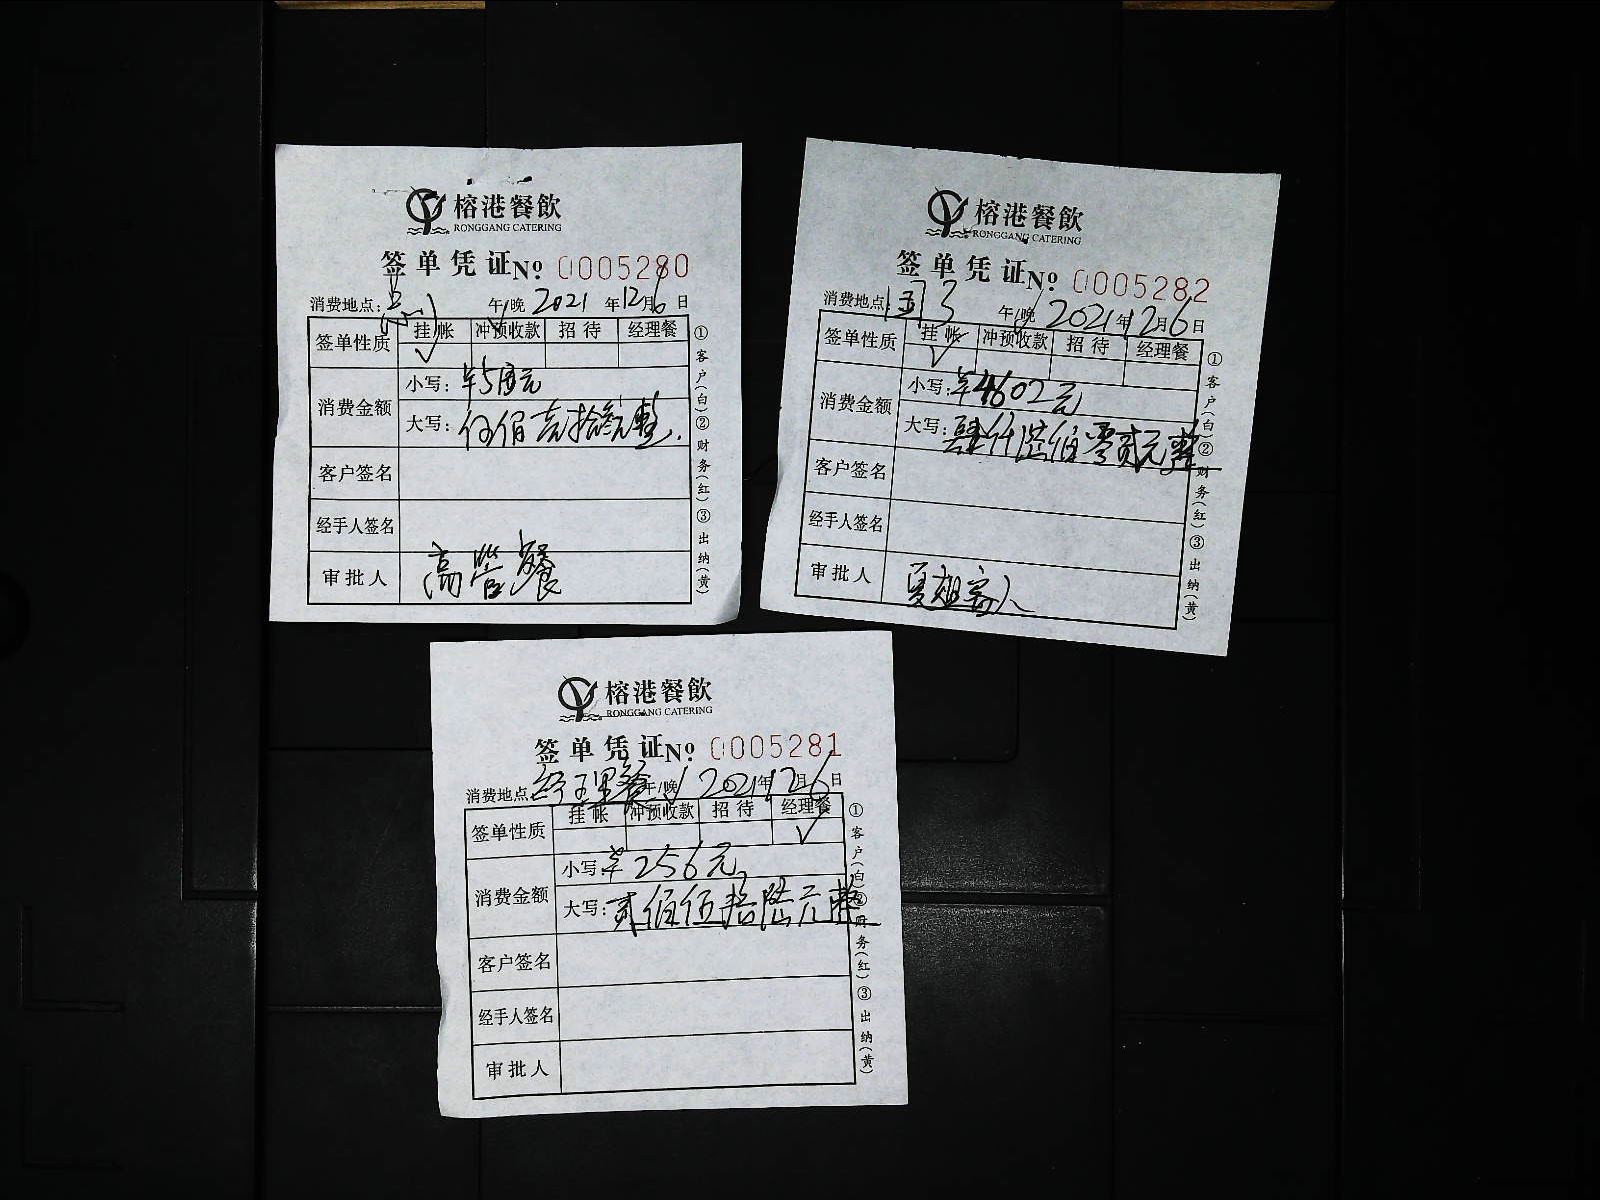 榕港餐飲
RONGGANG CATERING
签单凭证No 0005280
消费地点: 午/晚 2021年12月6日
签单性质 挂帐 冲预收款 招待 经理餐
✓
消费金额 小写:
大写: 伍佰壹拾叁元整
客户签名
经手人签名
审批人 高管餐
①客户(白)②财务(红)③出纳(黄)
榕港餐飲
RONGGANG CATERING
签单凭证No 0005282
消费地点: 午/晚 2021年12月6日
签单性质 挂帐 冲预收款 招待 经理餐
✓
消费金额 小写: ¥4602元
大写: 肆仟陆佰零贰元整
客户签名
经手人签名
审批人 夏姐客人
①客户(白)②财务(红)③出纳(黄)
榕港餐飲
RONGGANG CATERING
签单凭证No 0005281
消费地点: 经理餐 午/晚 2021年12月6日
签单性质 挂帐 冲预收款 招待 经理餐
✓
消费金额 小写: ¥256元
大写: 贰佰伍拾陆元整
客户签名
经手人签名
审批人
①客户(白)②财务(红)③出纳(黄)